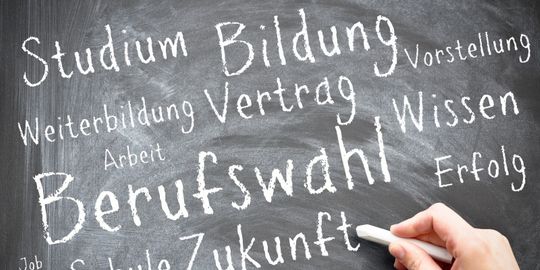 Studium Bildung Vorstellung
Weiterbildung Vertrag Wissen
Arbeit
Berufswahl Erfolg
Job Schule Zukunft